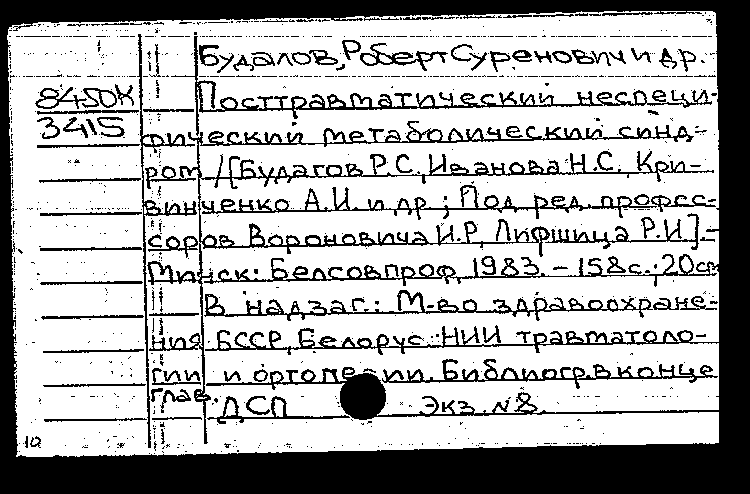 Будалов, Роберт Суренович и др.
8450К Посттравматический неспеци-
3415 фический метаболический синд-
ром /[Будагов Р.С., Иванова Н.С., Кри-
винченко А.И. и др ; Под ред. професс-
соров Вороновича И.Р, Лифшица Р.И].-
Минск: Белсовпроф, 1983. - 158с.; 20см
В надзаг.: М-во здравоохране-
ния БССР, Белорус. НИИ травматоло-
гии и ортопедии. Библиогр. в конце
глав.
ДСП Экз. №8.
10